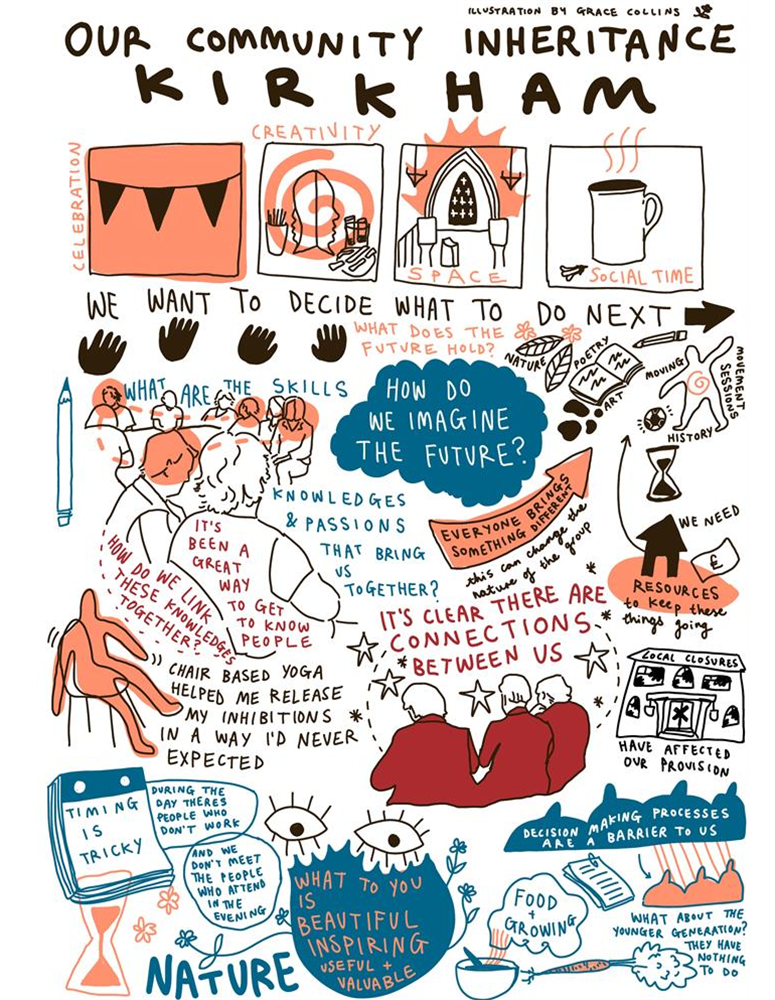 ILLUSTRATION BY GRACE COLLINS
OUR COMMUNITY INHERITANCE
KIRKHAM
CELEBRATION
CREATIVITY
SPACE
SOCIAL TIME
WE WANT TO DECIDE WHAT TO DO NEXT
WHAT DOES THE
FUTURE HOLD?
NATURE
POETRY
ART
MOVING
MOVEMENT
SESSIONS
HISTORY
WHAT ARE THE SKILLS
HOW DO
WE IMAGINE
THE FUTURE?
KNOWLEDGES
& PASSIONS
THAT BRING
US
TOGETHER?
EVERYONE BRINGS
SOMETHING DIFFERENT
this can change the
nature of the group
WE NEED
£
RESOURCES
to keep these
things going
IT'S
BEEN A
GREAT
WAY
TO GET
TO KNOW
PEOPLE
HOW DO WE LINK
THESE KNOWLEDGES
TOGETHER?
IT'S CLEAR THERE ARE
CONNECTIONS
BETWEEN US
CHAIR BASED YOGA
HELPED ME RELEASE
MY INHIBITIONS
IN A WAY I'D NEVER
EXPECTED
LOCAL CLOSURES
HAVE AFFECTED
OUR PROVISION
TIMING
IS
TRICKY
DURING THE
DAY THERES
PEOPLE WHO
DON'T WORK
AND WE
DON'T MEET
THE PEOPLE
WHO ATTEND
IN THE
EVENING
WHAT TO YOU
IS
BEAUTIFUL
INSPIRING
USEFUL +
VALUABLE
NATURE
DECISION MAKING PROCESSES
ARE A BARRIER TO US
FOOD
+
GROWING
WHAT ABOUT THE
YOUNGER GENERATION?
THEY HAVE
NOTHING
TO DO